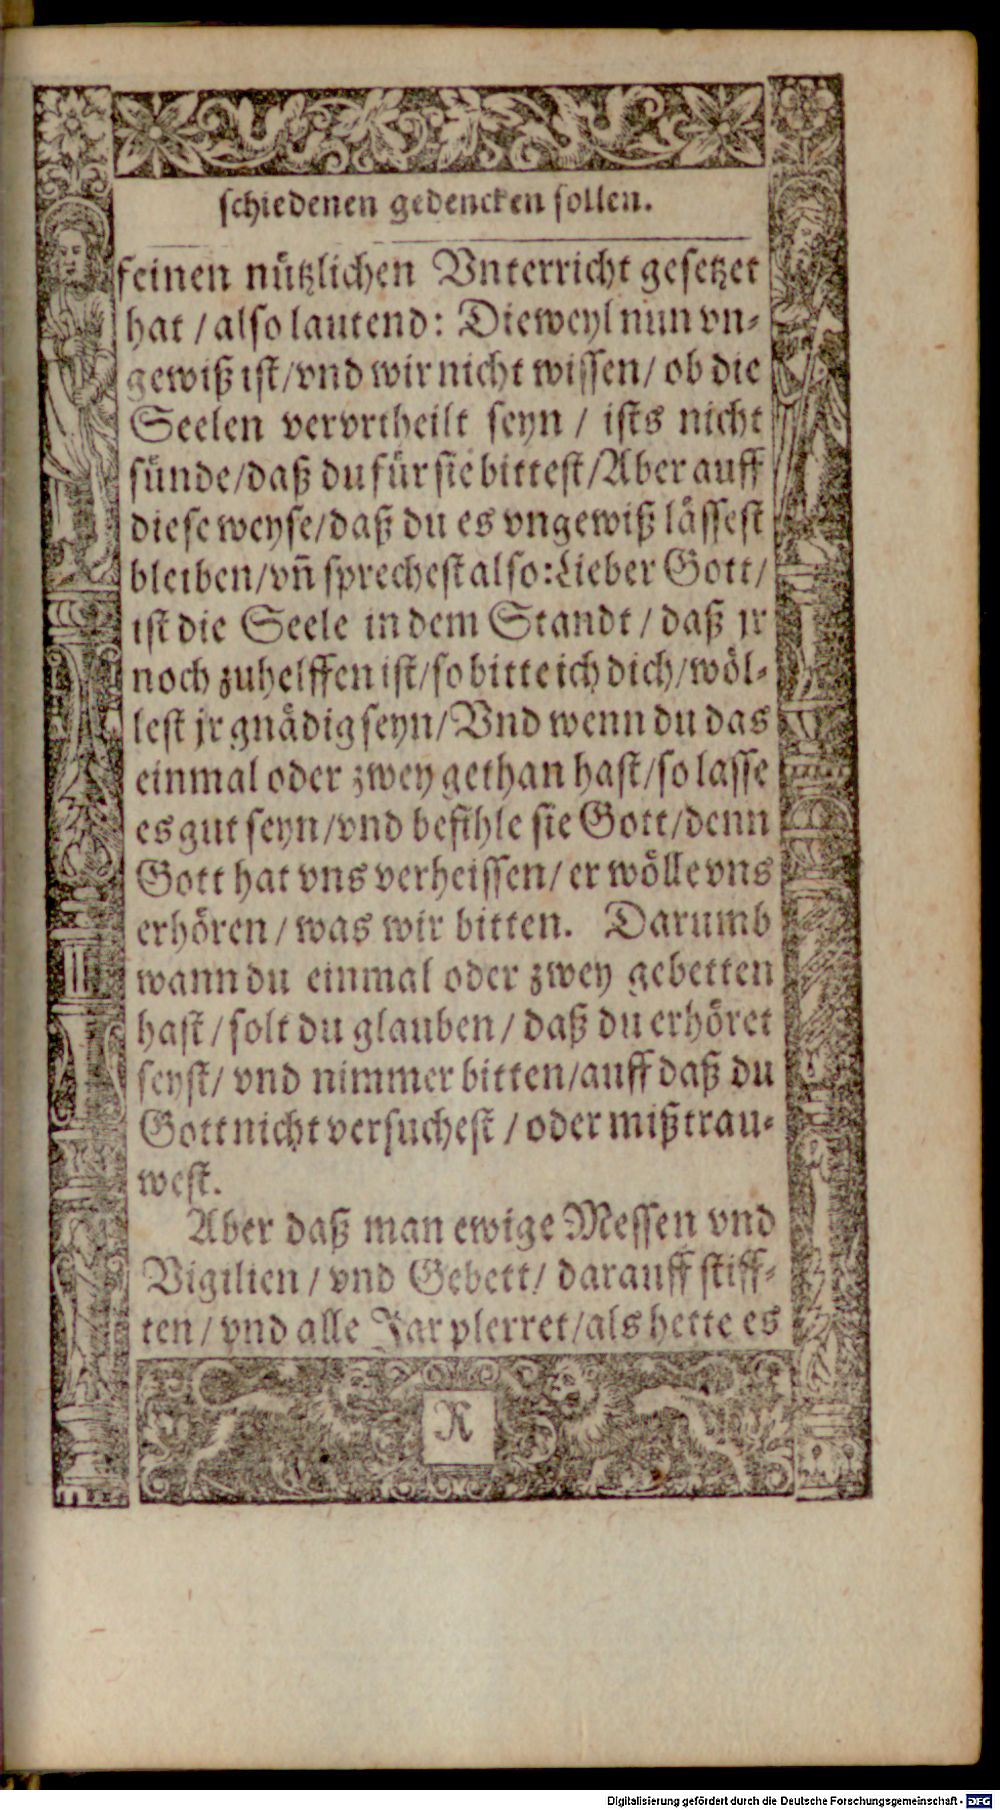 schiedenen gedencken sollen.
feinen nützlichen Vnterricht gesetzet
hat / also lautend: Dieweyl nun vn-
gewiß ist/vnd wir nicht wissen/ ob die
Seelen vervrtheilt seyn / ists nicht
sünde/daß du für sie bittest/Aber auff
diese weyse/daß du es vngewiß lässest
bleiben/vn̄ sprechest also:Lieber Gott/
ist die Seele in dem Standt / daß jr
noch zuhelffen ist/so bitte ich dich/wöl-
lest jr gnädig seyn/Vnd wenn du das
einmal oder zwey gethan hast/so lasse
es gut seyn/vnd befihle sie Gott/denn
Gott hat vns verheissen/ er wölle vns
erhören / was wir bitten. Darumb
wann du einmal oder zwey gebetten
hast / solt du glauben / daß du erhöret
seyst/ vnd nimmer bitten/auff daß du
Gott nicht versuchest / oder mißtrau-
west.
Aber daß man ewige Messen vnd
Vigilien / vnd Gebett/ darauff stiff-
ten / vnd alle Jar plerret/als hette es
R
Digitalisierung gefördert durch die Deutsche Forschungsgemeinschaft - DFG